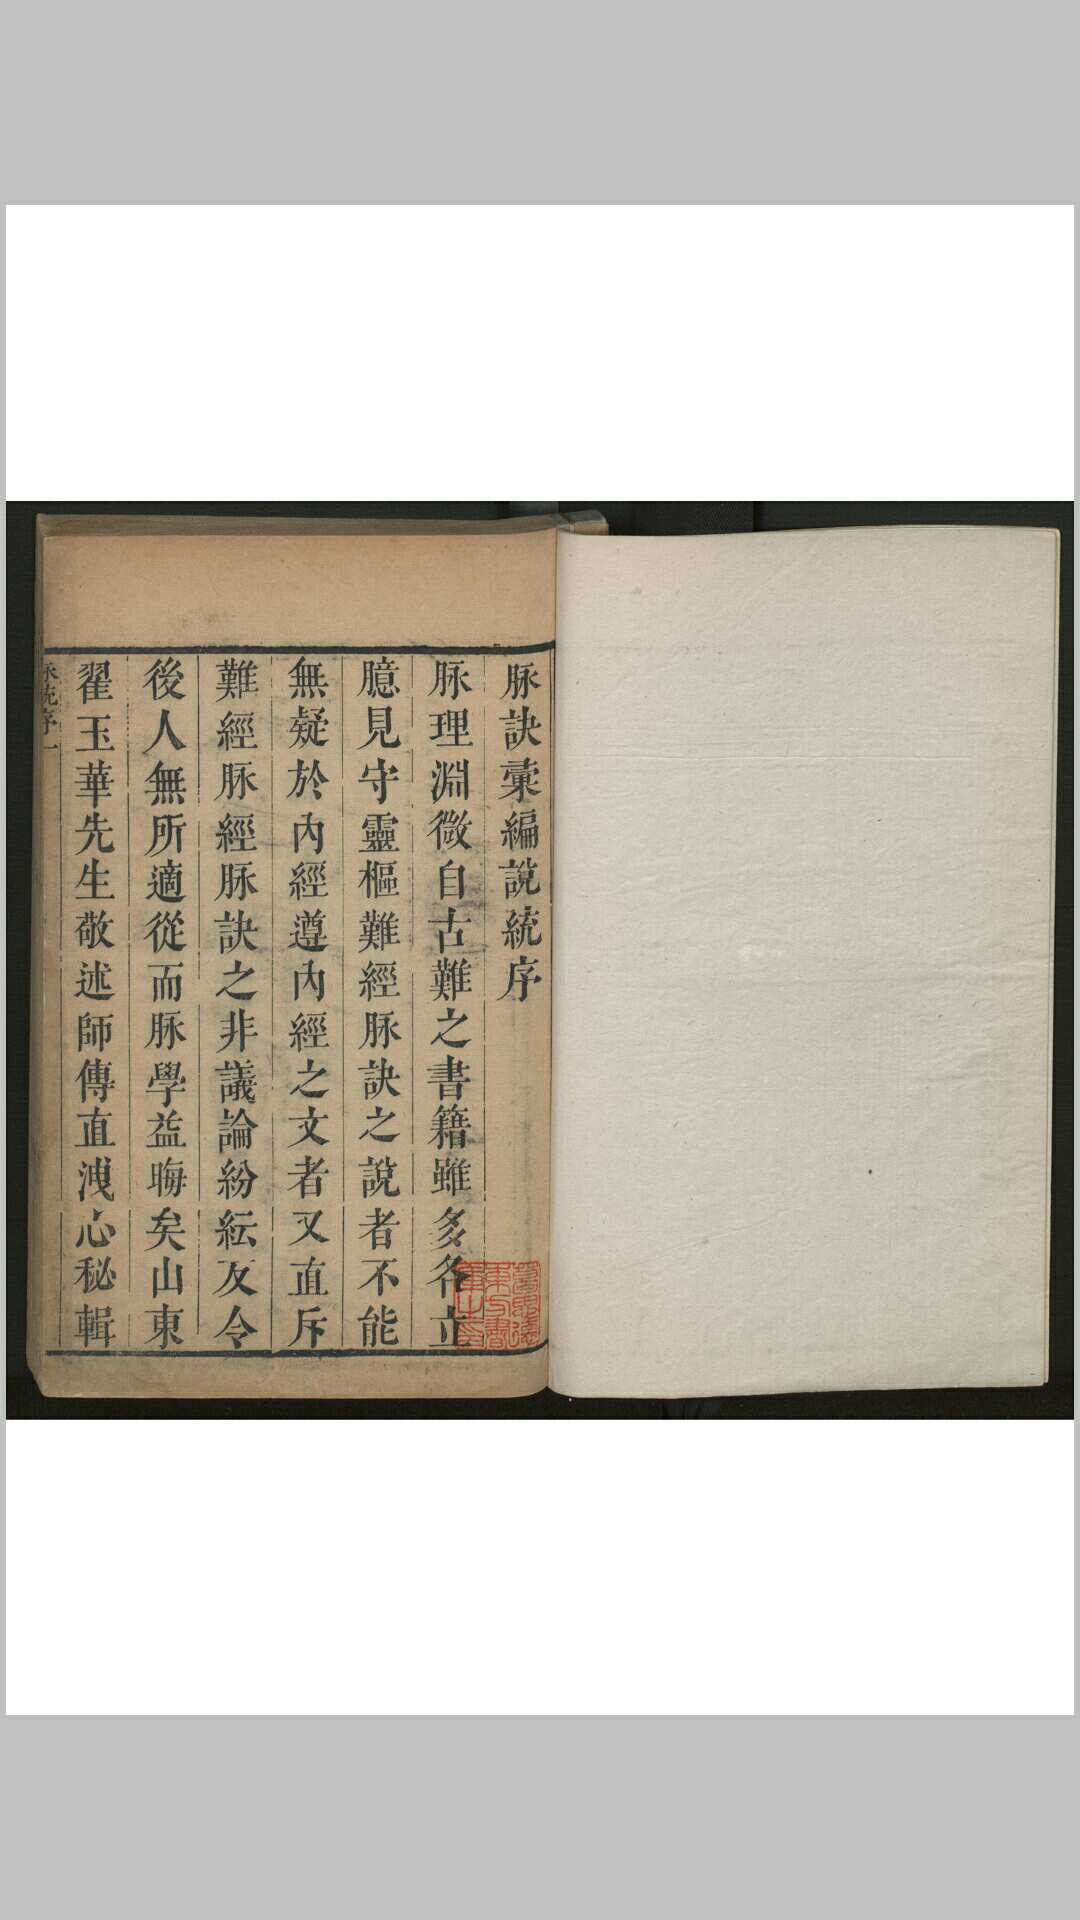 脉訣彙編說統序
脉理淵微自古難之書籍雖多各立
臆見守靈樞難經脉訣之說者不能
無疑於內經遵內經之文者又直斥
難經脉經脉訣之非議論紛紜反令
後人無所適從而脉學益晦矣山東
翟玉華先生敬述師傳直洩心秘輯
脉統序一